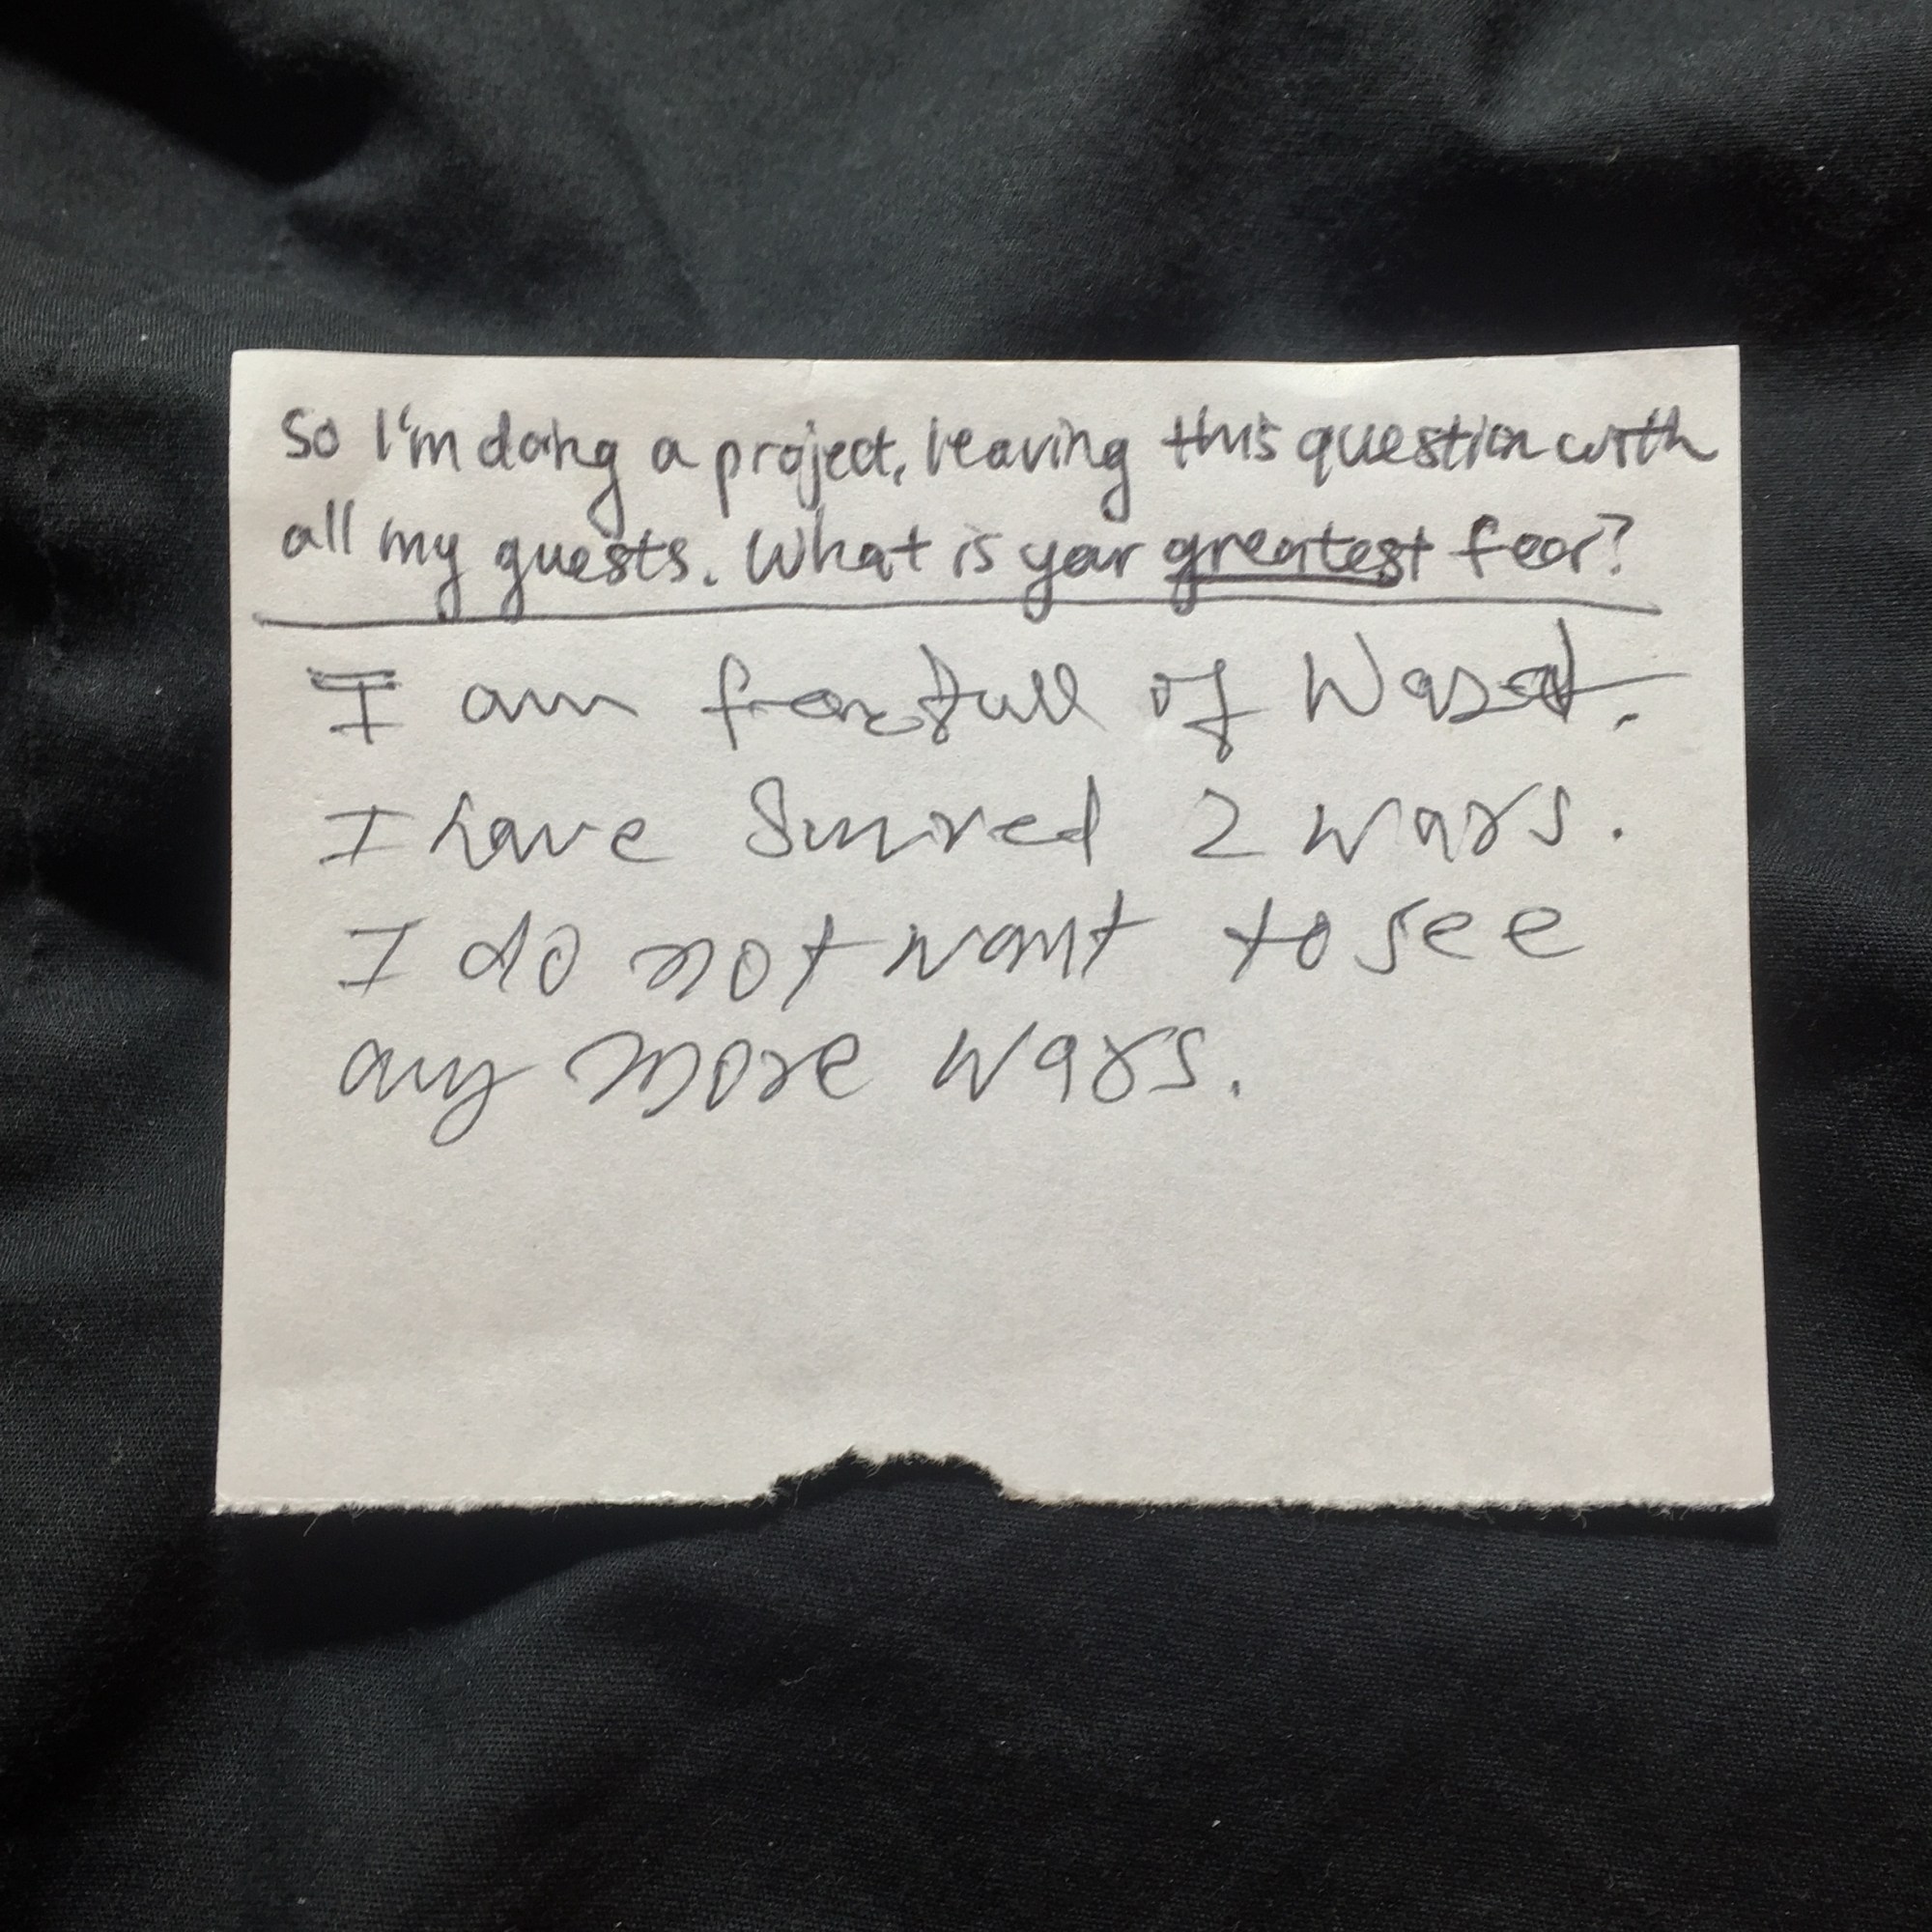 So I'm doing a project, leaving this question with
all my guests. What is your greatest fear?
I am fearfull of War.
I have Survived 2 wars.
I do not want to see
any more wars.